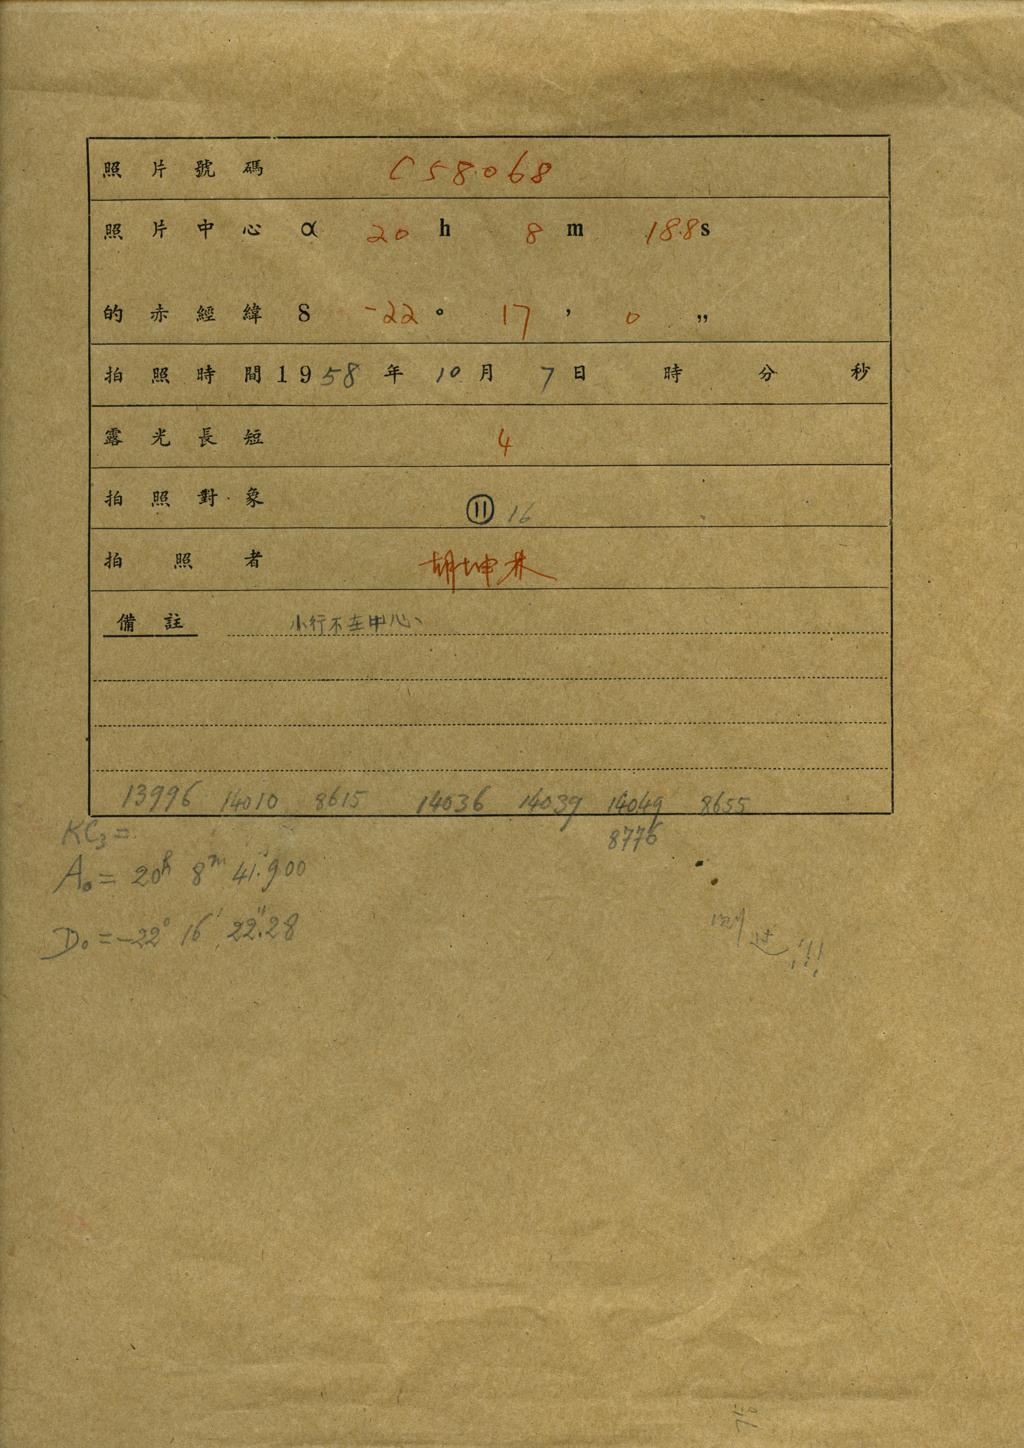 照片號碼 C58068
照片中心 α 20 h 8 m 18.8 s
的赤經緯 δ -22 ° 17 ′ 0 ″
拍照時間 1958 年 10 月 7 日 時 分 秒
露光長短 4
拍照對象 ⑪ 16
拍照者 胡坤林
備註 小行不在中心、
13996 14010 8615 14036 14039 14049 8655
8776
KC₃=
A₀= 20ʰ 8ᵐ 41ˢ.900
D₀=-22° 16′ 22″.28
测过!!!